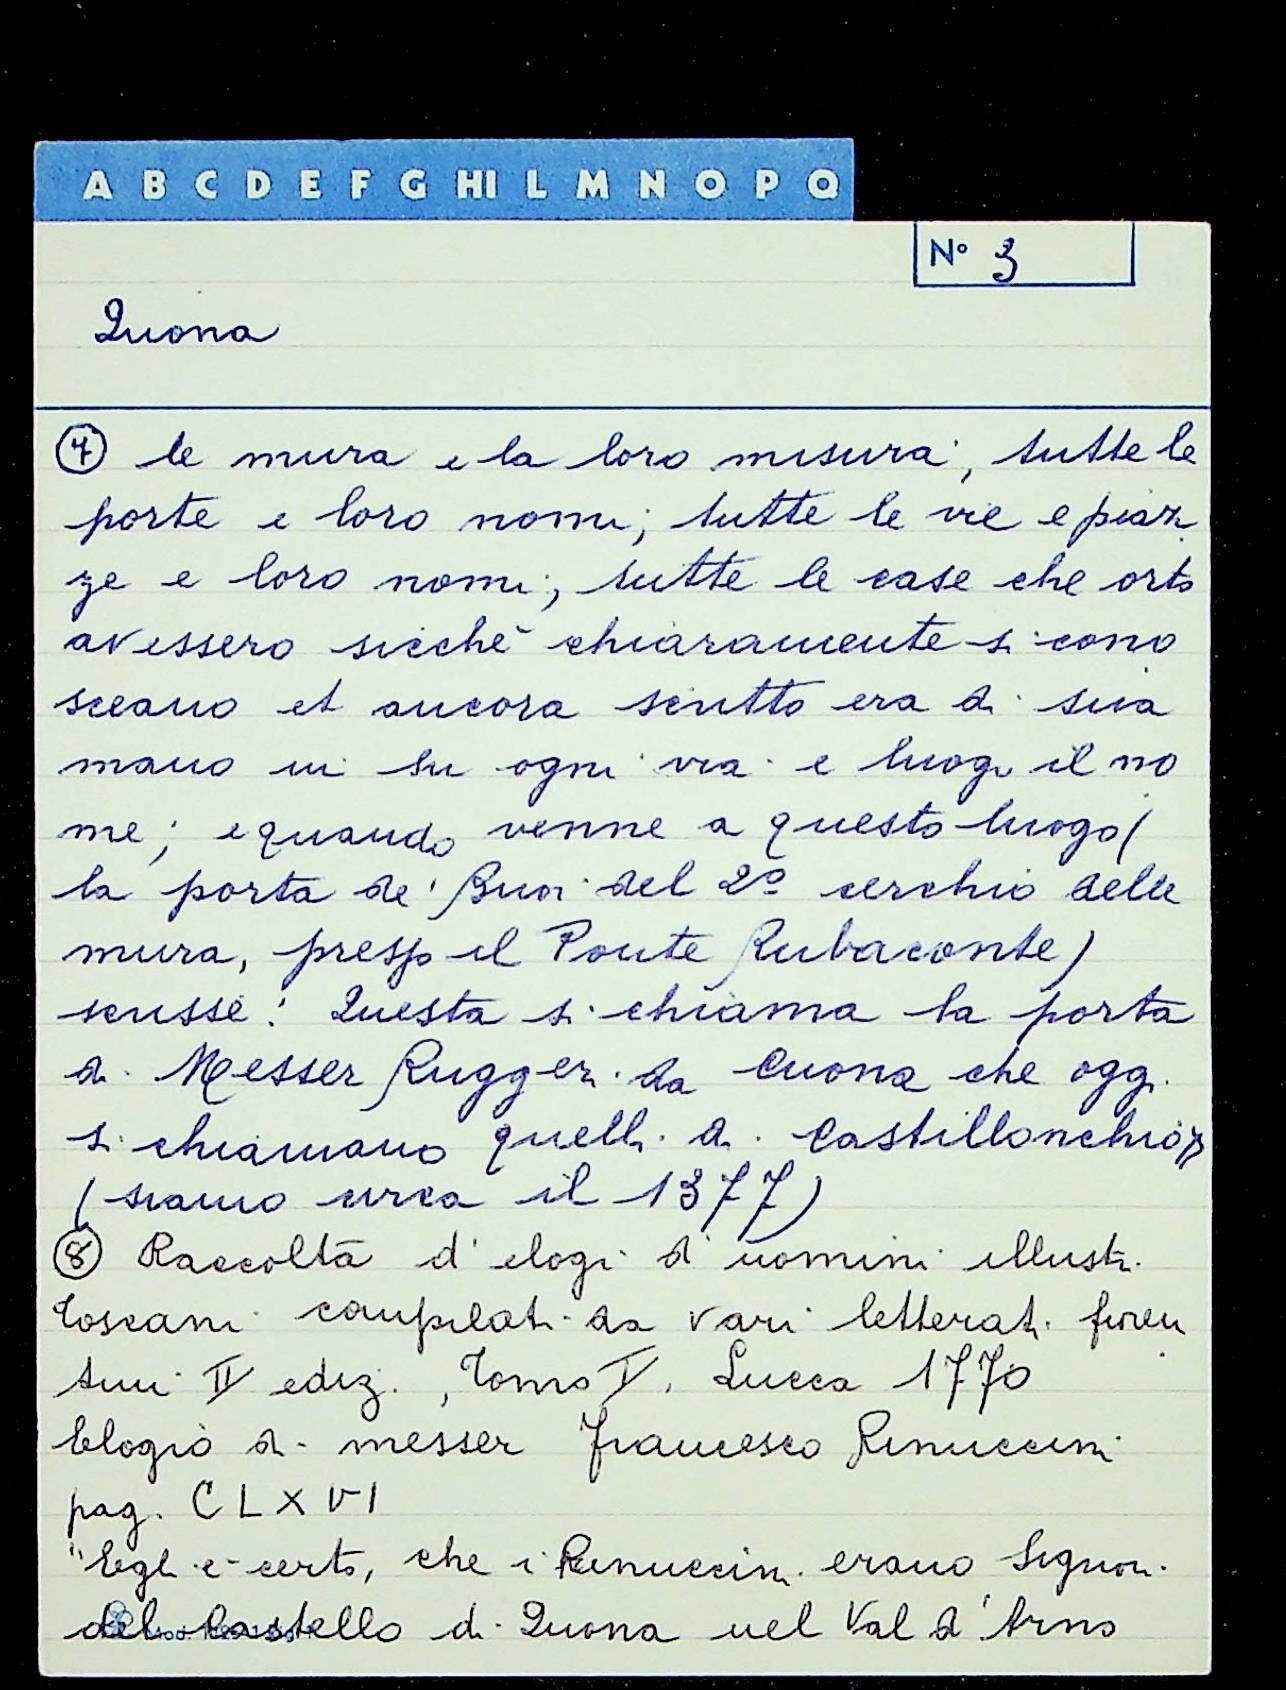 A B C D E F G HI L M N O P Q
N° 3
Quona
⑦ le mura e la loro misura, tutte le
porte e loro nomi; tutte le vie e piaz
ze e loro nomi; tutte le case che orto
avessero sicchè chiaramente si cono
sceano et ancora scritto era di sua
mano in su ogni via e luogi il no
me; e quando venne a questo luogo (
la porta de' Buoi del 2° cerchio delle
mura, presso il Ponte Rubaconte)
scrisse: Questa si chiama la porta
di Messer Ruggeri da Cuona che oggi
si chiamano quelli di Castillonchio"
(siamo circa il 1377)
⑧ Raccolta d'elogi d'uomini illustri
Toscani compilati da vari letterati fioren
tini II ediz., Tomo I, Lucca 1770
Elogio di messer Francesco Rinuccini
pag. CLXVI
"Egli è certo, che i Rinuccini erano Signori
del Castello di Quona nel Val d'Arno